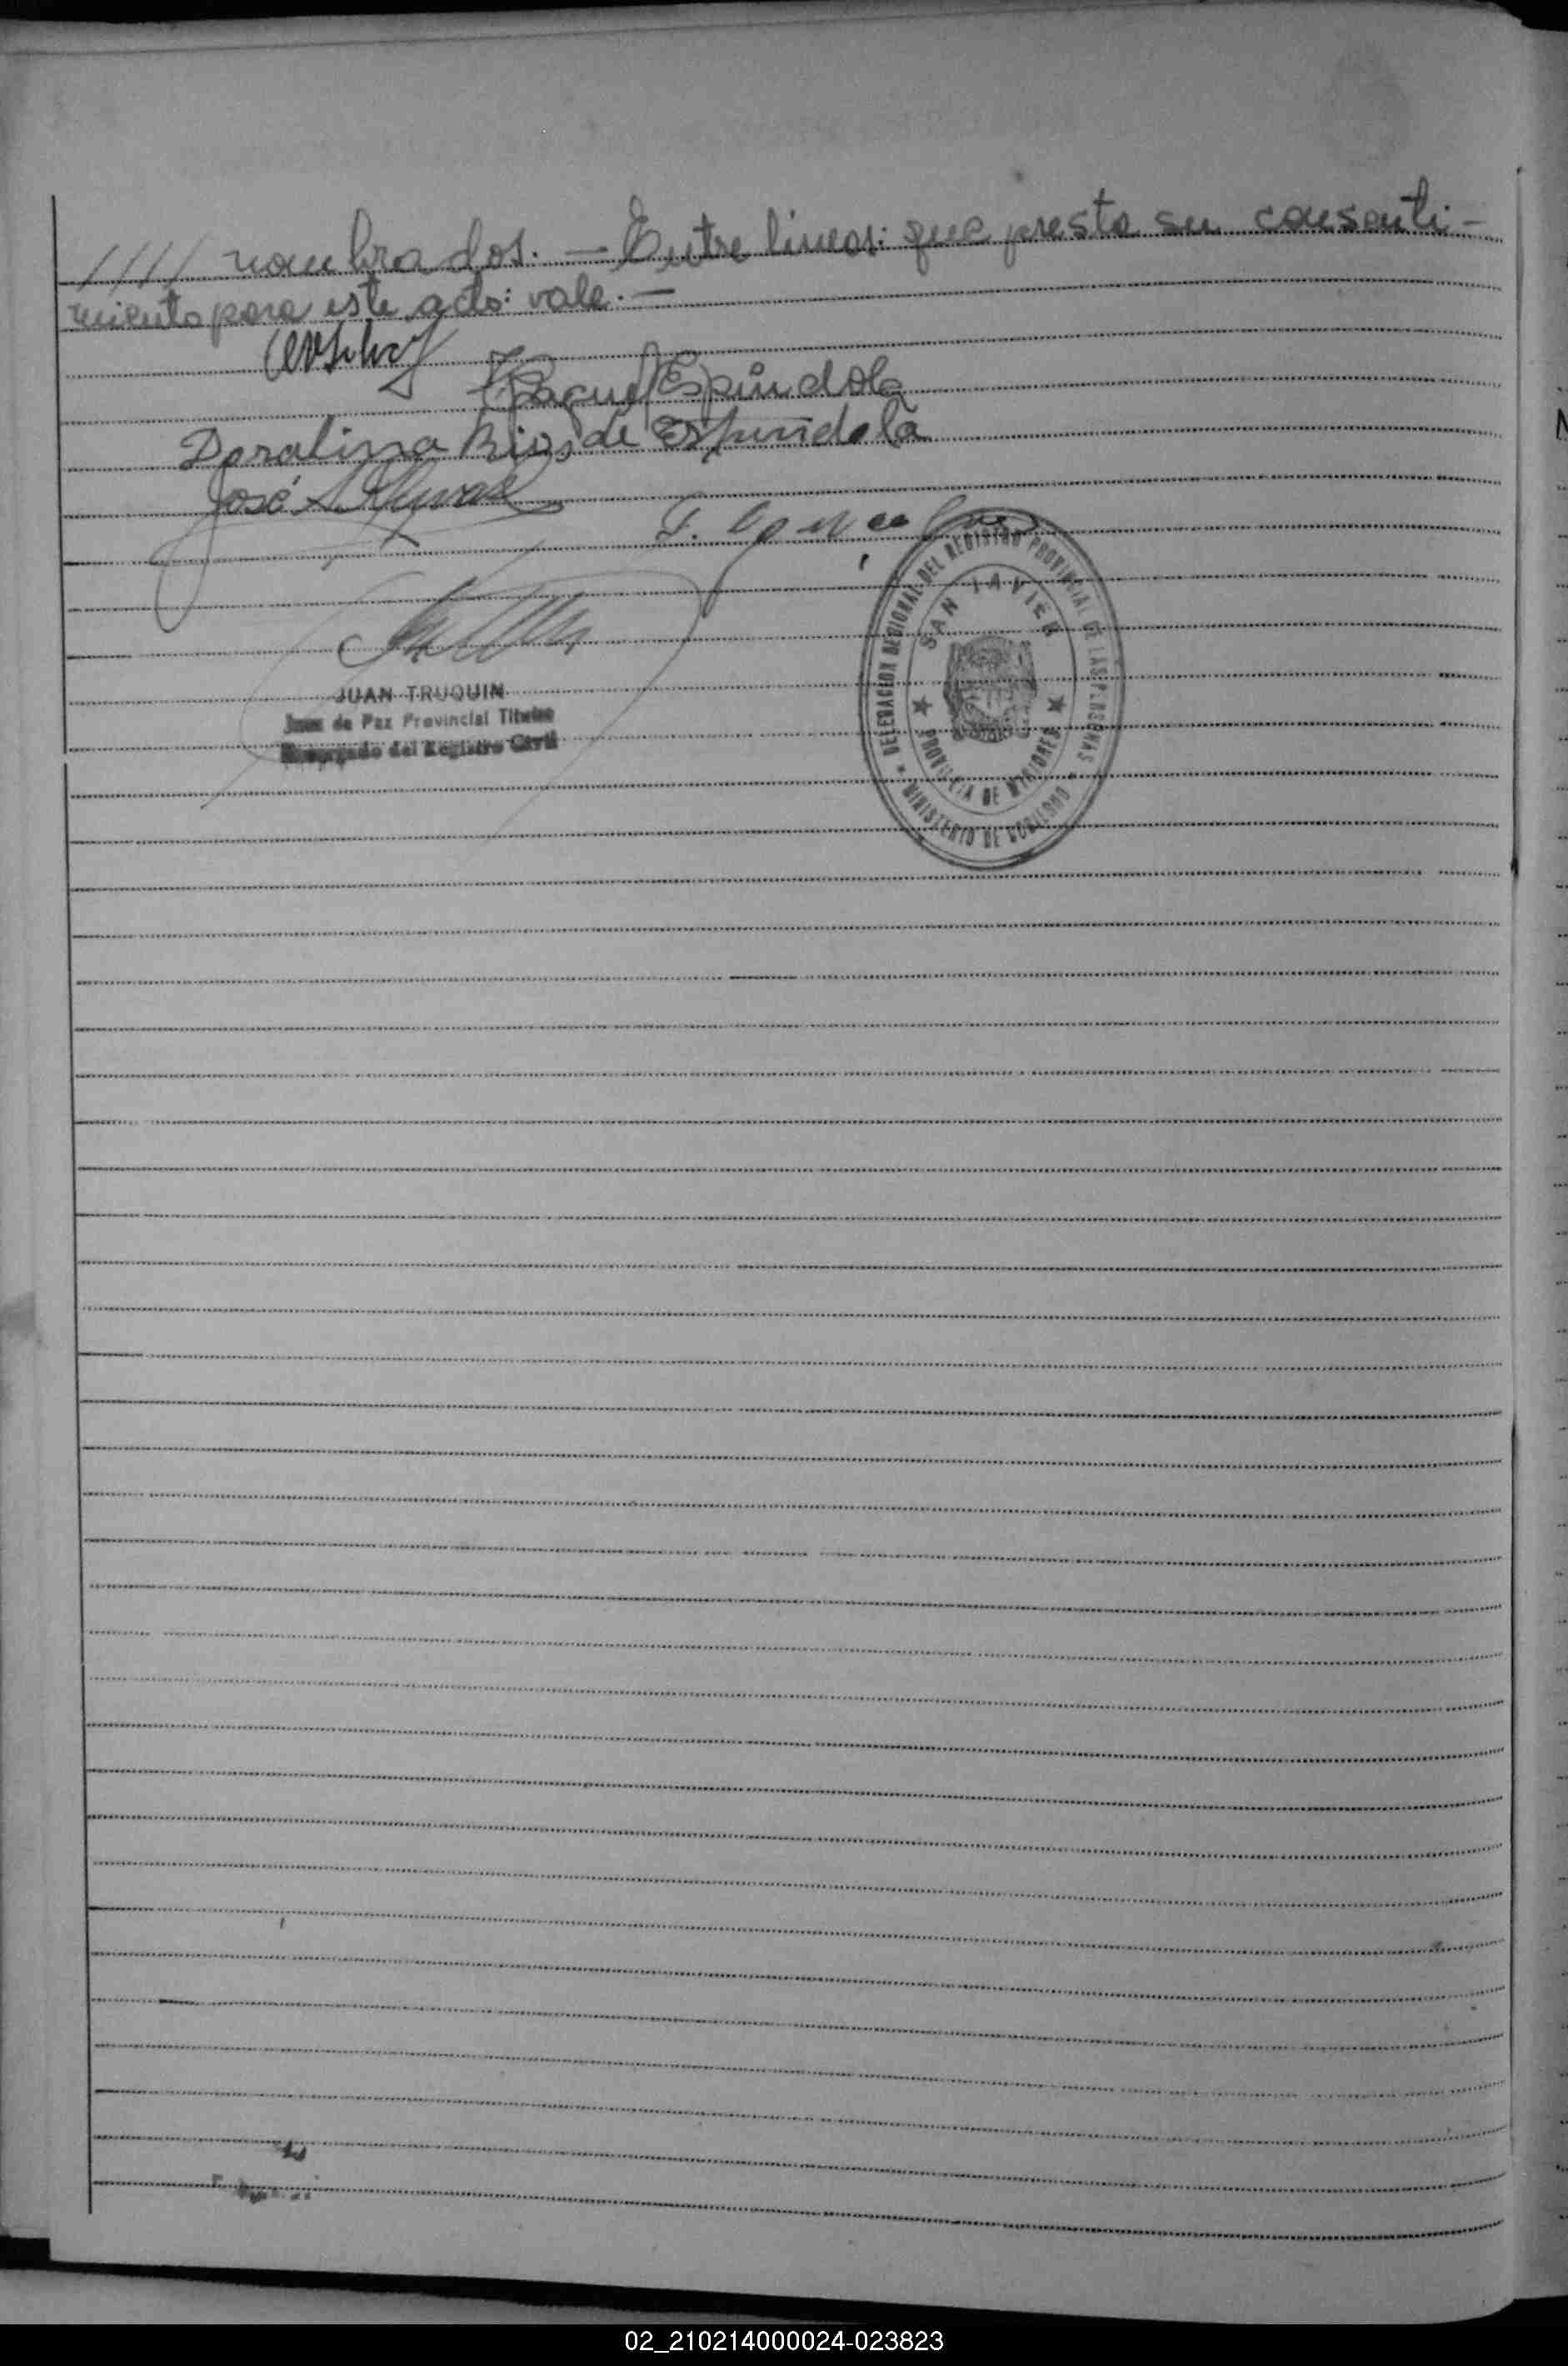 //// nombrados. — Entre lineas: que presta su consenti-
miento para este acto: vale. —
Raquel Espíndola
Doralina Rios de Espíndola
José
JUAN TRUQUIN
Juez de Paz Provincial Titular
Encargado del Registro Civil
DELEGACION REGIONAL DEL REGISTRO PROVINCIAL DE LAS PERSONAS
SAN JAVIER
PROVINCIA DE MISIONES
MINISTERIO DE GOBIERNO
02_210214000024-023823